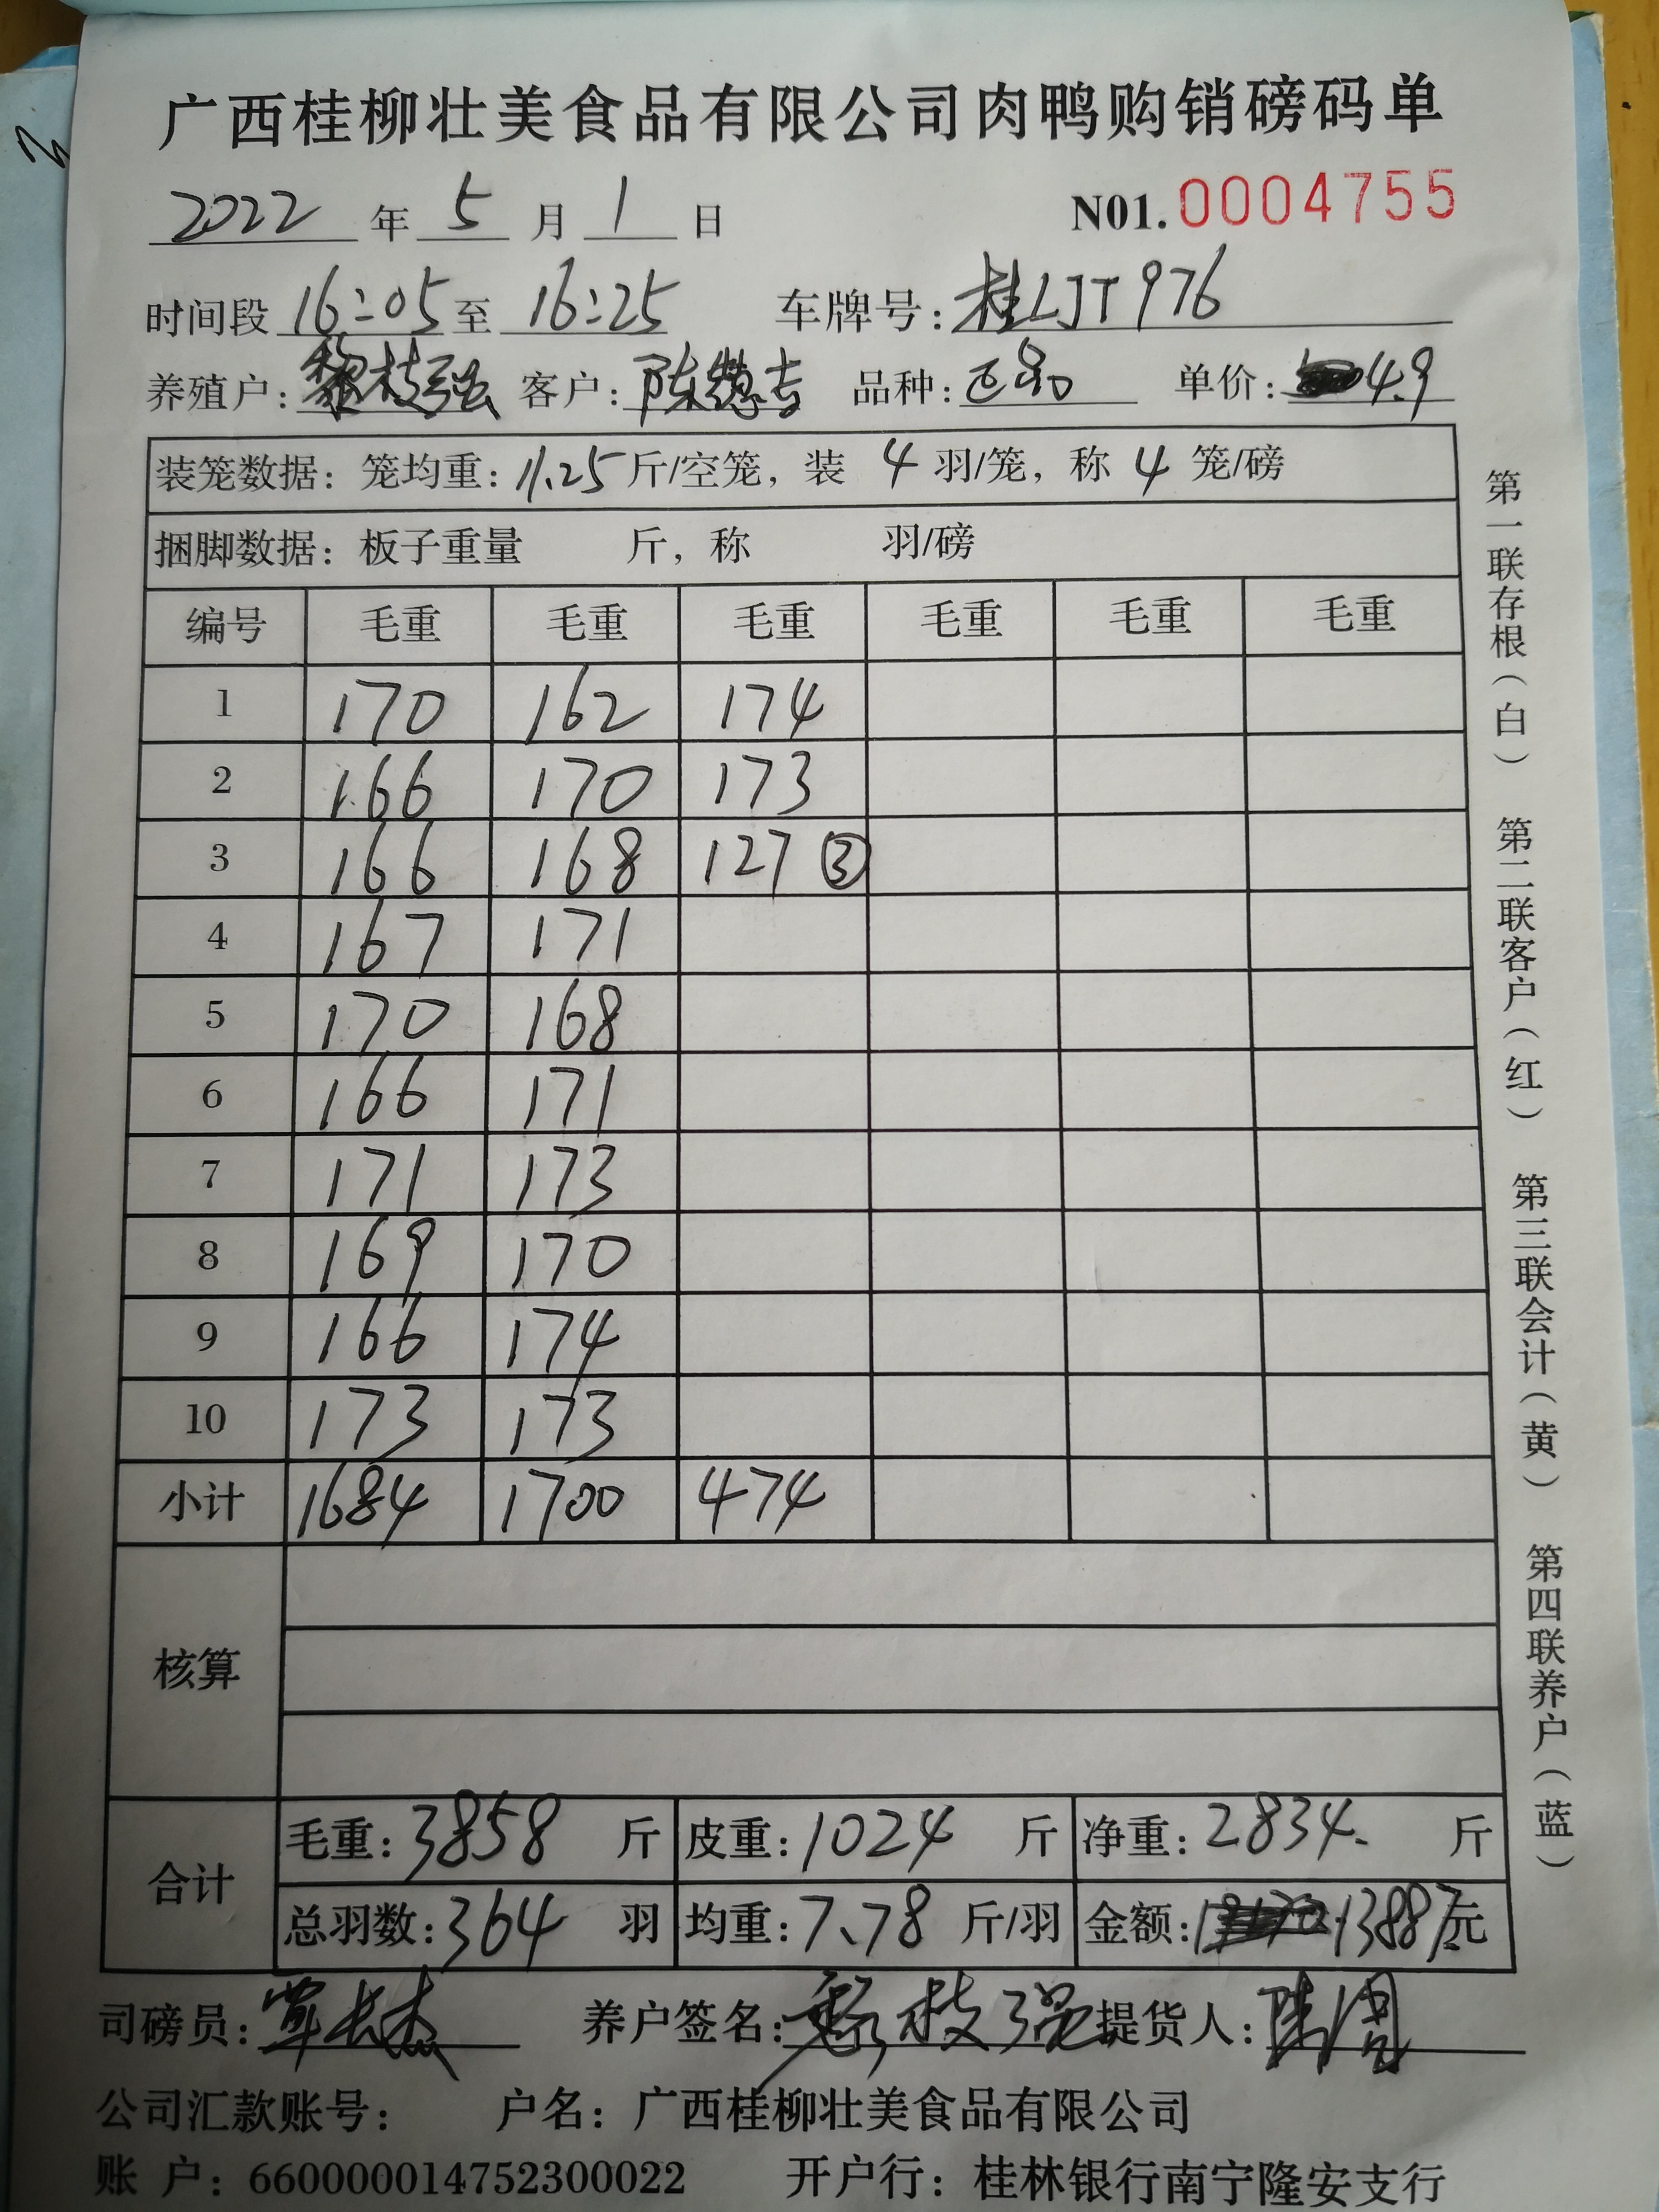 广西桂柳壮美食品有限公司肉鸭购销磅码单
2022 年 5 月 1 日 N01.0004755
时间段 16:05 至 16:25 车牌号: 桂LJT976
养殖户: 黎枝强 客户: 陈 吉 品种: 单价: 4.9
装笼数据: 笼均重: 11.25 斤/空笼, 装 4 羽/笼, 称 4 笼/磅
捆脚数据: 板子重量 斤, 称 羽/磅
编号 毛重 毛重 毛重 毛重 毛重 毛重
1 170 162 174
2 166 170 173
3 166 168 127 ③
4 167 171
5 170 168
6 166 171
7 171 173
8 169 170
9 166 174
10 173 173
小计 1684 1700 474
核算
合计
毛重: 3858 斤 皮重: 1024 斤 净重: 2834. 斤
总羽数: 364 羽 均重: 7.78 斤/羽 金额: 13887元
司磅员: 养户签名: 黎枝强 提货人:
公司汇款账号: 户名: 广西桂柳壮美食品有限公司
账 户: 660000014752300022 开户行: 桂林银行南宁隆安支行
第一联存根(白) 第二联客户(红) 第三联会计(黄) 第四联养户(蓝)